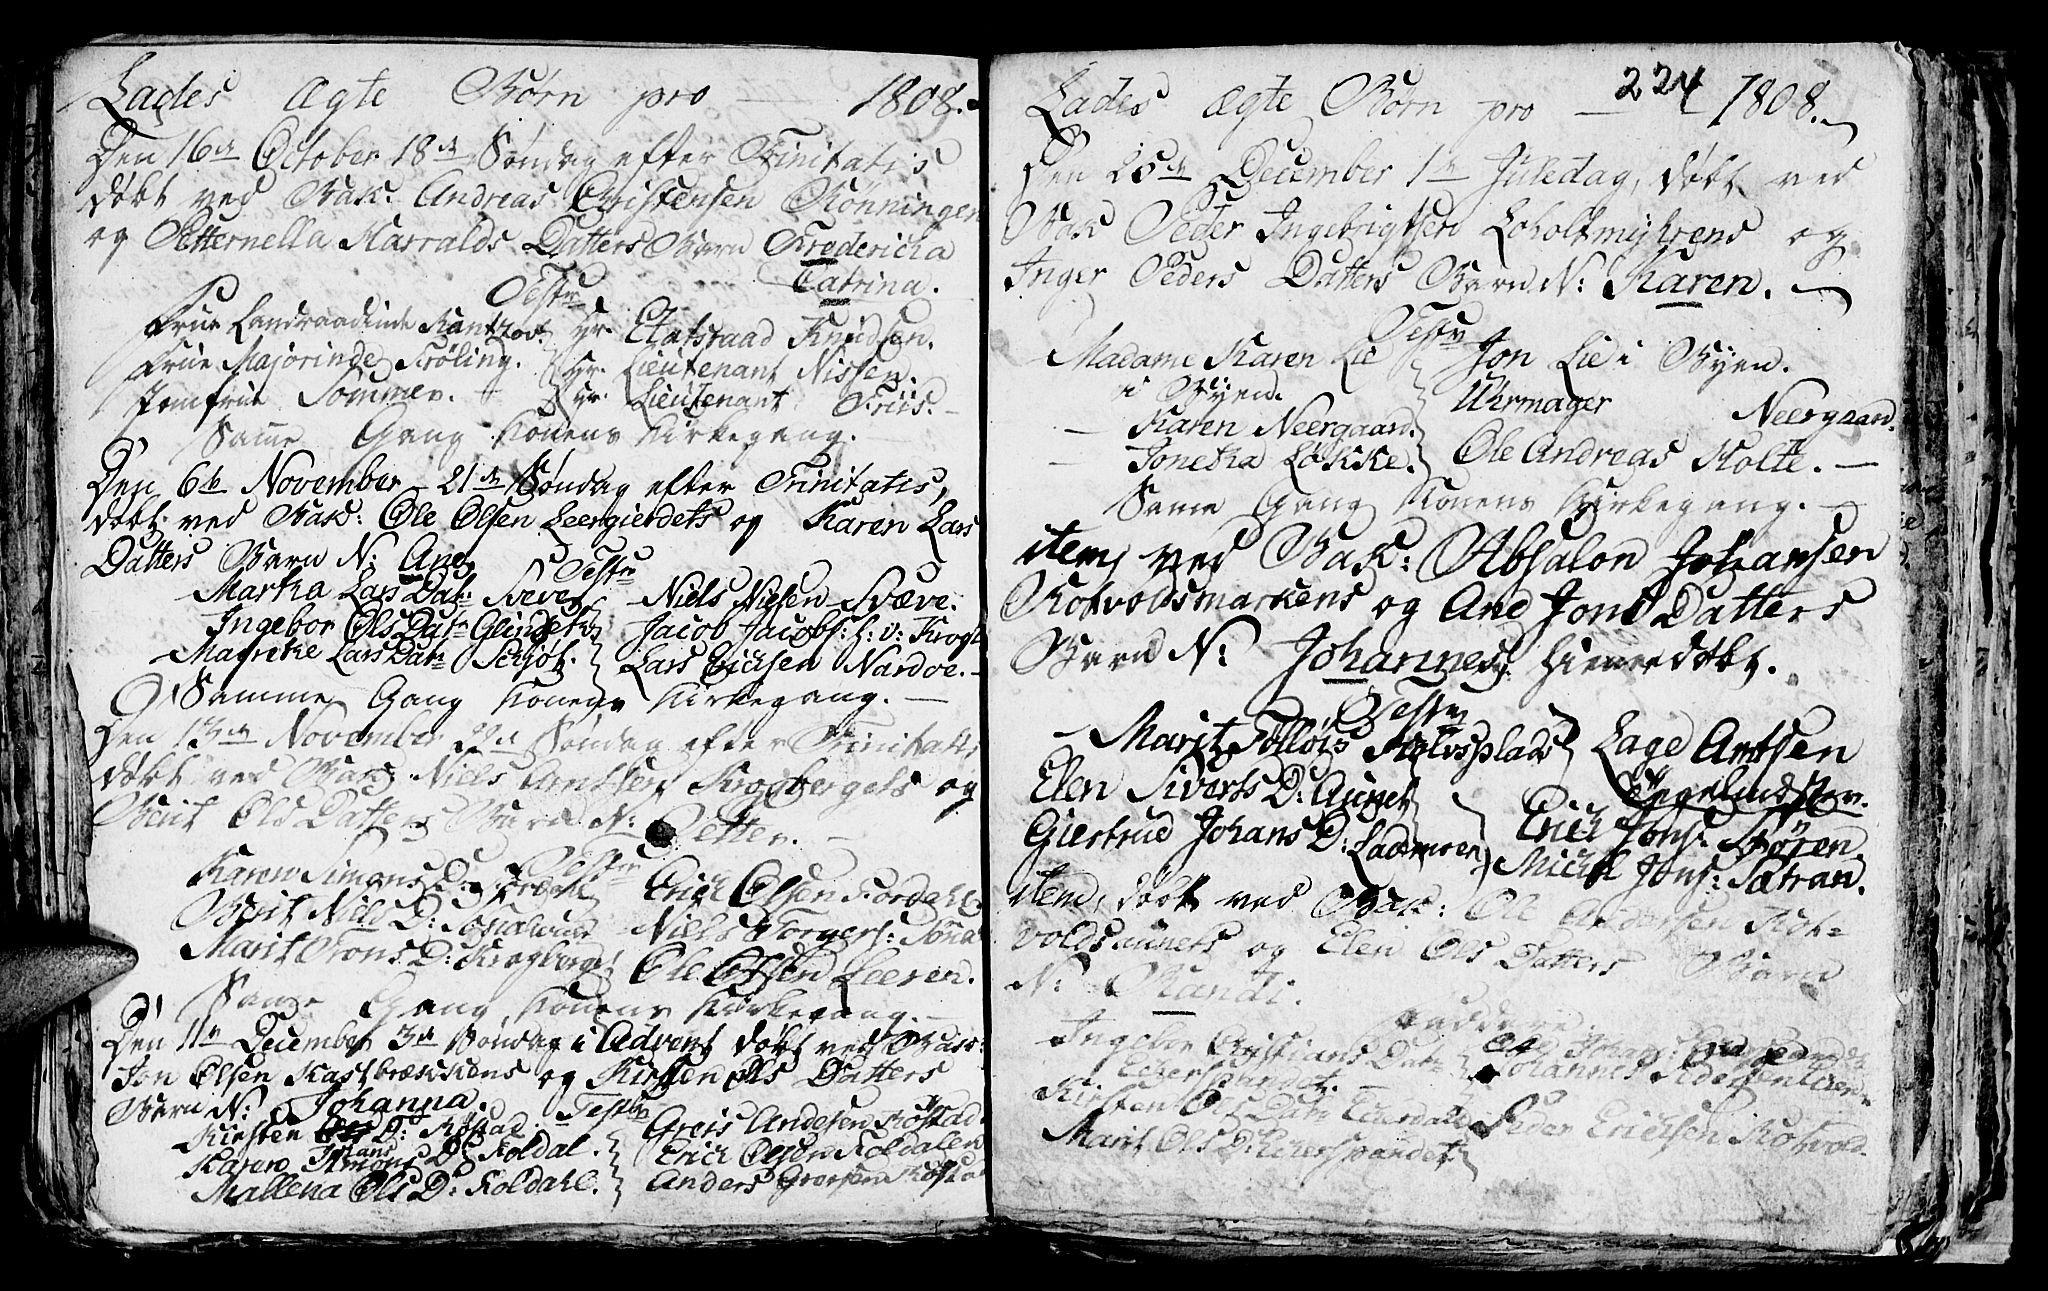 Lades ægte Børn pro — 1808.
Den 16de October 18de Søndag efter Trinitatis
døbt ved Bak: Andreas Christensen Rønningen
og Petternella Harralds Datters Barn Fredericha
Catrina.
Testes
Frue Landraadinde Rantzov. Hr. Etatsraad Knudsen.
Frue Majorinde Frøling. Hr. Lieutenant Nissen.
Jomfrue Sommer. Hr. Lieutenant Friis.
Same Gang Konens Kirkegang.
Den 6te November 21de Søndag efter Trinitatis,
døbt ved Bak: Ole Olsen Leergierdets og Karen Lars
Datters Barn N: Ane
Testes
Martha Lars Dat: Niels Nielsen Svæve.
Ingebor Ols Datr Jacob Jacobs: h: v: Krogh
Marithe Lars Datr Schiøt. Lars Erichsen Nardoe.
Samme Gang Konens Kirkegang.
Den 13de November 22de Søndag efter Trinitatis,
døbt ved Bak: Niels Arntsen Krogbergets og
Berit Ols Datters Barn N: Petter.
Testes
Karen Simons D: Erich Olsen
Berit Niels D: Niels Torgers:
Marit Trons D: Krogberget Ole Olsen Leeren.
Same Gang Konens Kirkegang.
Den 11te December 3de Søndag i Advent døbt ved Bak:
Jon Olsen Kastbrækkens og Kirsten Ols Datters
Barn N: Johanna.
Testes
Kirsten D: Røstad. Greis Andersen Røstad
Karen Hans D: Koldal. Erich Olsen Koldalen
Mallena Ols D: Koldahl. Anders Greisen
224
Lades ægte Børn pro — 1808.
Den 25de December 1te Juledag, døbt ved
Bak Peder Ingebrigtsen Loholtmyhrens og
Inger Peders Datters Barn N: Karen.
Testes
Madame Karen Lie Jon Lie i Byen.
i Byen. Uhrmager Neergaard.
Karen Neergaard. Ole Andreas Holte.
Jonetha Løkke.
Same Gang Konens Kirkegang.
item, ved Bak: Absalon Johansen
Rotvoldsmarkens og Ane Jons Datters
Barn N: Johannes. Hiemedøbt.
Testes
Marit Lage Arntsen
Elen Siverts D: Engelmdsther.
Giertrud Johans D: Lademoen Erich Jons: Støren
Michel Jons: Sætran.
item, døbt ved Bak: Ole Andersen Rot-
voldsaunets og Elen Ols Datters Barn
N: Randi.
Faddere.
Ingebor Christians Datr
Kirsten Ols Datr Johannes Pedersen
Marit Ols D: Peder Erichsen Rotvold.